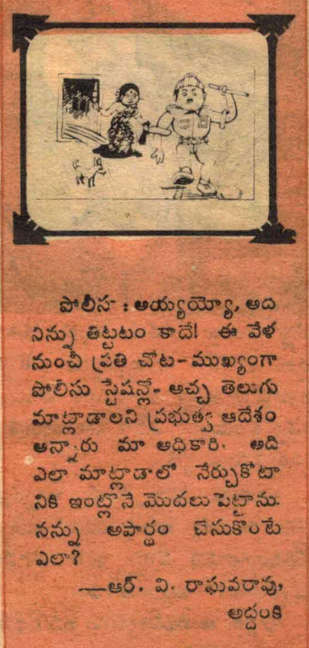 పోలీస : అయ్యయ్యో, అది
నిన్ను తిట్టటం కాదే! ఈ వేళ
నుంచీ ప్రతి చోట-ముఖ్యంగా
పోలీసు స్టేషన్లో- అచ్చ తెలుగు
మాట్లాడాలని ప్రభుత్వ ఆదేశం
అన్నారు మా అధికారి. అది
ఎలా మాట్లాడాలో నేర్చుకోటా
నికి ఇంట్లోనే మొదలు పెట్టాను.
నన్ను అపార్థం చేసుకొంటే
ఎలా?
—ఆర్. వి. రాఘవరావు,
అద్దంకి